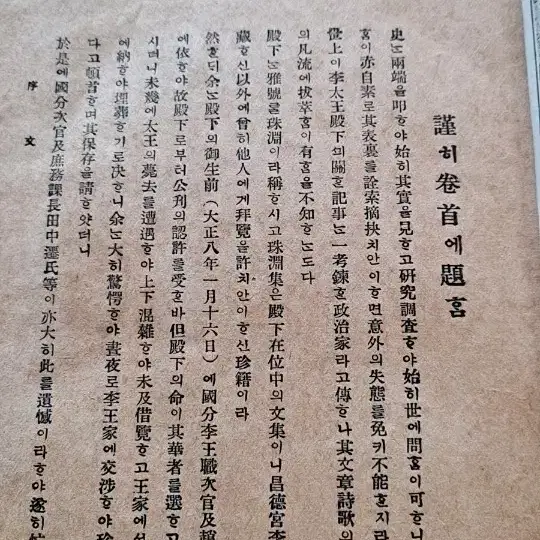 謹히 卷首에 題홈
史는 兩端을 叩ᄒᆞ야 始히 其實을 見ᄒᆞ고 硏究調査ᄒᆞ야 始히 世에 問홈이 可ᄒᆞ니
홈이 亦自素로 其表裏를 詮索摘抉치 안이ᄒᆞ면 意外의 失態를 免키 不能ᄒᆞᆯ지라
上이 李太王殿下의 關ᄒᆞᆫ 記事는 一考鍊ᄒᆞᆫ 政治家라고 傳ᄒᆞ나 其文章詩歌의
의 凡流에 拔萃홈이 有홈을 不知ᄒᆞ는도다
殿下는 雅號를 珠淵이라 稱ᄒᆞ시고 珠淵集은 殿下在位中의 文集이니 昌德宮李
藏ᄒᆞ신 以外에 曾히 他人에게 拜覽을 許치 안이ᄒᆞ신 珍籍이라
然ᄒᆞ되 余는 殿下의 御生前(大正八年一月十六日)에 國分李王職次官及趙
에 依ᄒᆞ야 故殿下로부터 公刊의 認許를 受ᄒᆞᆫ바 但殿下의 命이 其華者를 選ᄒᆞ고
시며니 未幾에 太王의 薨去를 遭遇ᄒᆞ야 上下混雜ᄒᆞ야 未及借覽ᄒᆞ고 王家에셔
에 納ᄒᆞ야 埋葬ᄒᆞ기로 決ᄒᆞ니 余는 大히 驚愕ᄒᆞ야 晝夜로 李王家에 交涉ᄒᆞ야 珍
다고 頓首ᄒᆞ며 其保存을 請ᄒᆞ얏더니
於是에 國分次官及庶務課長田中遷氏等이 亦大히 此를 遺憾이라ᄒᆞ야 遂히
序文